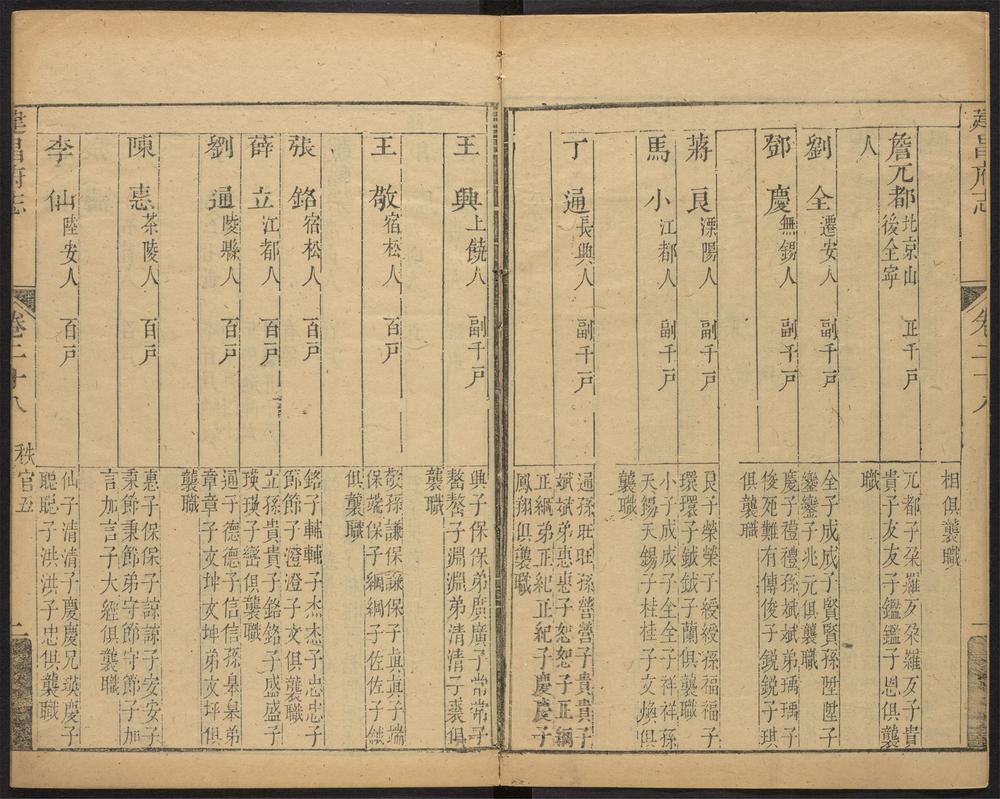 建昌府志
卷二十八
一
相俱襲職
詹元都 北京山後全寧人 正千戸
元都子朶羅歹朶羅歹子貴
貴子友友子鑑鑑子恩俱襲
職
劉全 遷安人 副千戸
全子成成子賢賢孫陞陞子
鑾鑾子兆元俱襲職
鄧慶 無錫人 副千戸
慶子禮禮孫斌斌弟瑀瑀子
俊死難有傳俊子銳銳子琪
俱襲職
蔣良 溧陽人 副千戸
良子榮榮子綬綬孫福福子
環環子鉞鉞子蘭俱襲職
馬小 江都人 副千戸
小子成成子全全子祥祥孫
天錫天錫子桂桂子文煥俱
襲職
丁通 長興人 副千戸
通孫旺旺孫營營子貴貴子
斌斌弟惠惠子恕恕子正綱
正綱弟正紀正紀子慶慶子
鳳翔俱襲職
王興 上饒人 副千戸
興子保保弟廣廣子常常子
鰲鰲子淵淵弟清清子裴俱
襲職
王敬 宿松人 百戸
敬孫謙保謙保子眞眞子端
保端保子綱綱子佐佐子鉞
俱襲職
張銘 宿松人 百戸
銘子輔輔子杰杰子忠忠子
節節子澄澄子文俱襲職
薛立 江都人 百戸
立孫貴貴子銘銘子盛盛子
瑛瑛子巒俱襲職
劉通 陵縣人 百戸
通子德德子信信孫皋皋弟
章章子文坤文坤弟文坪俱
襲職
陳惪 茶陵人 百戸
惠子保保子諒諒子安安子
秉節秉節弟守節守節子加
言加言子大經俱襲職
李仙 陸安人 百戸
仙子清清子慶慶兄瑛慶子
聰聰子洪洪子忠俱襲職
建昌府志
卷二十八
秩官五
二